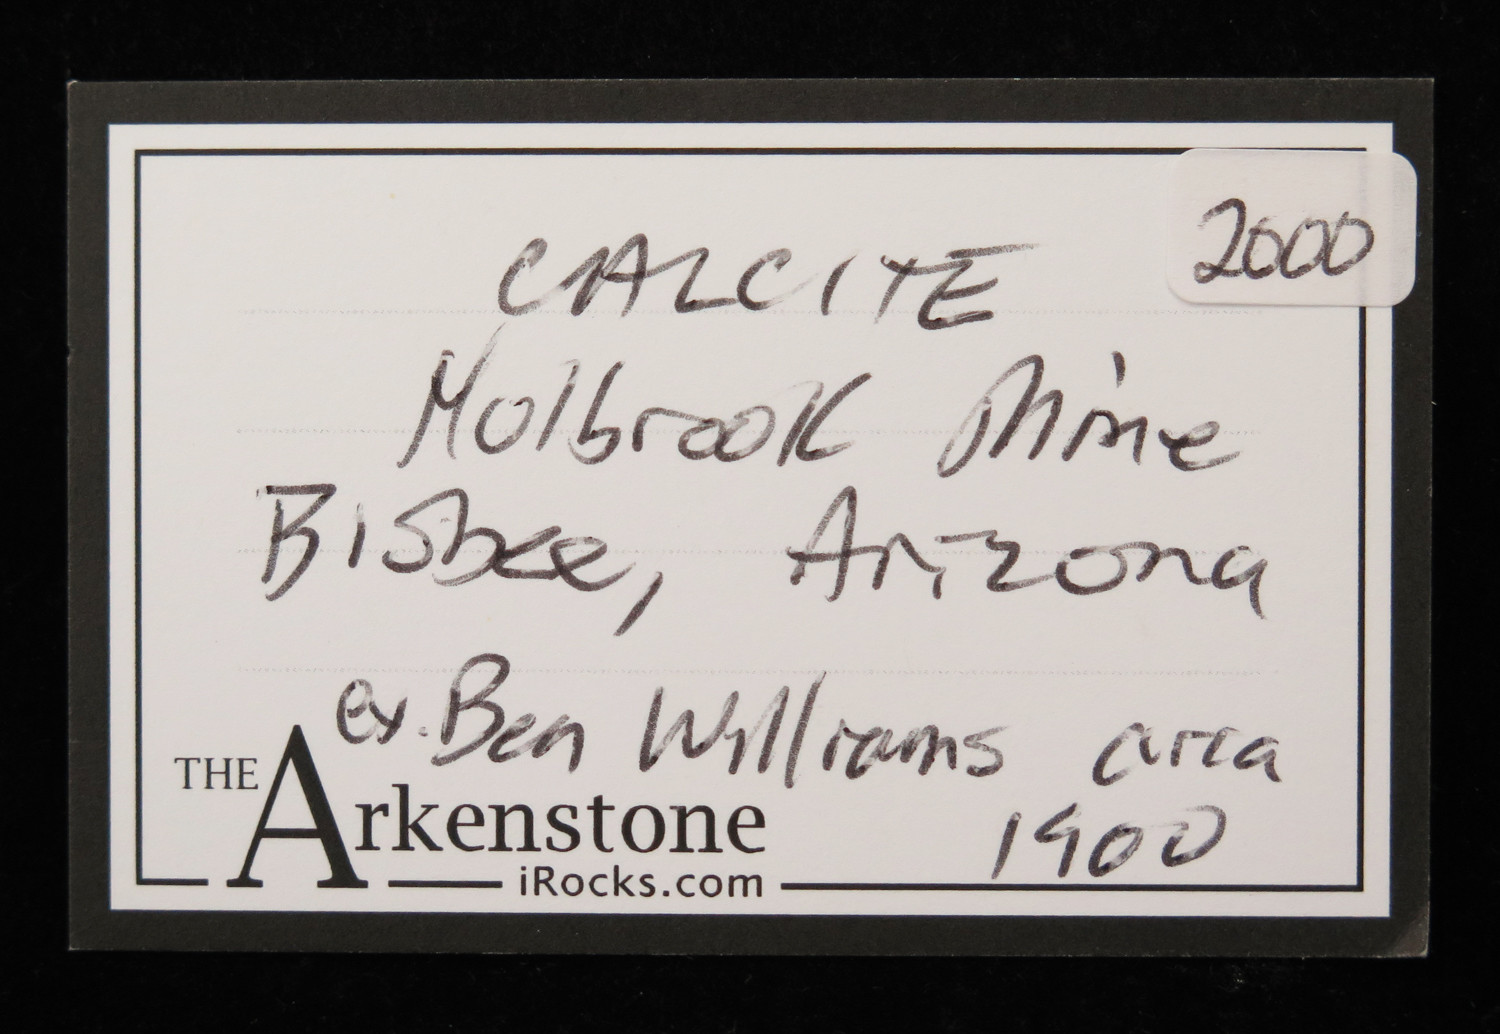 2000
CALCITE
Holbrook Mine
Bisbee, Arizona
ex. Ben Williams circa
1900
THE Arkenstone
iRocks.com